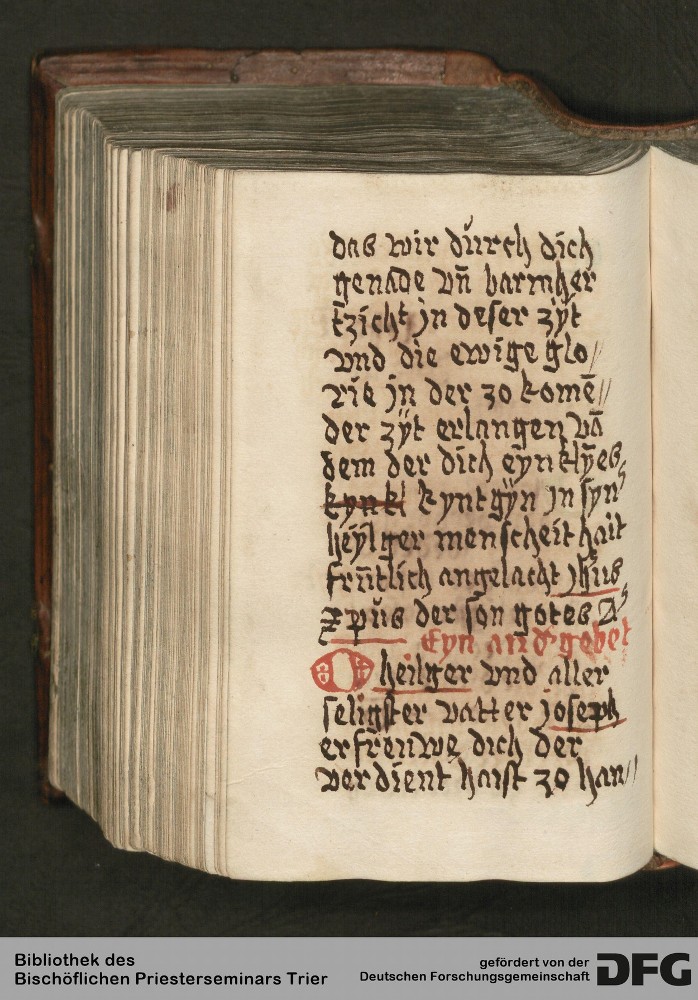 das wir durch dich
genade vn̄ barmher
tzicht jn deser zÿt
vnd die ewige glo//
rie jn der zo komē//
der zÿt erlangen vā
dem der dich eyn klÿes
kynk kyntgÿn jn syn
heÿlger menscheit hait
frūtlich angelacht jh̄us
xp̄us der son gotes A
Eyn and' gebet
O heilger vnd aller
seligster vatter joseph
erfreuwe dich der
verdient haist zo han//
Bibliothek des
Bischöflichen Priesterseminars Trier
gefördert von der
Deutschen Forschungsgemeinschaft
DFG